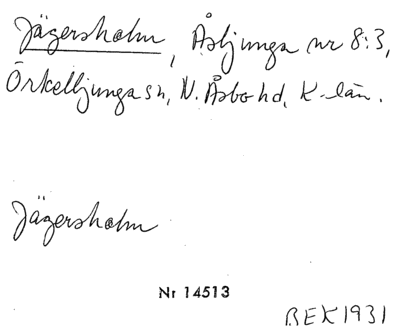 Jägersholm, Åsljunga nr 8:3,
Örkelljunga sn, N. Åsbo hd, K-län.
Jägersholm
Nr 14513
BEK1931